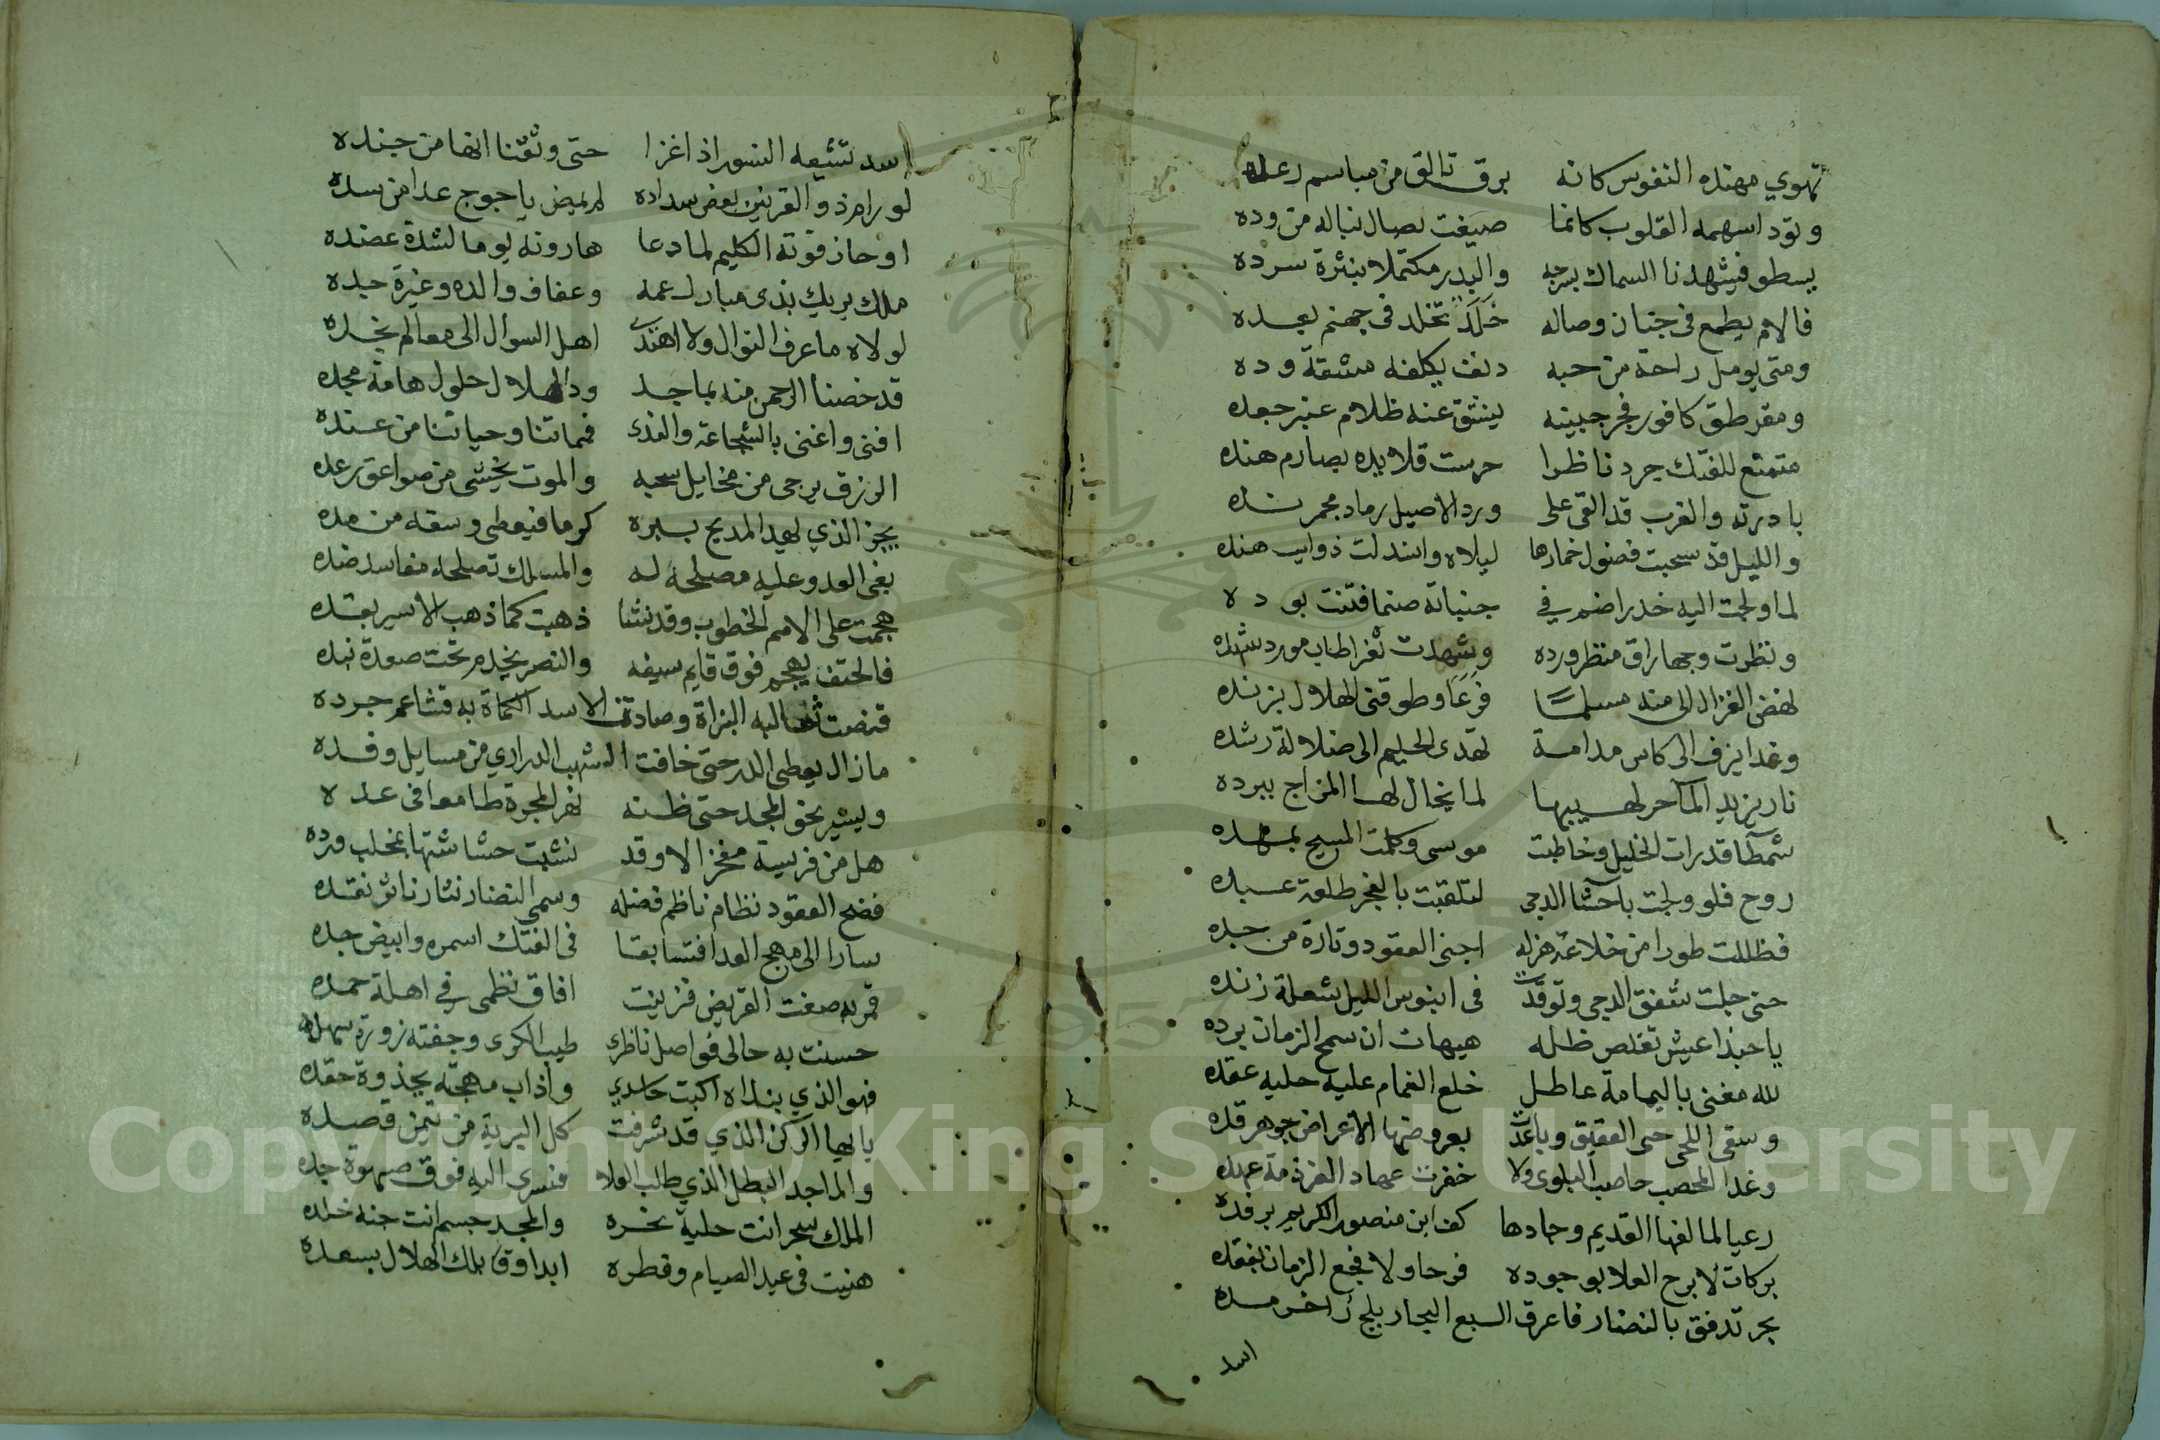 تهوي مهنده النفوس كانه برق تالق من مباسم رعده
وتود اسهمه القلوب كانما صيغت نصال نباله من وده
يسطو فيشهدنا السماك برمحه والبدر مكتملا بنثرة سرده
فالام يطمع في جنان وصاله خلد تخلد في جهنم بعده
ومتى يومل راحة من حبه دنف يكلفه مشقة وده
ومقرطق كافور فجر جبينه ينشق عنه ظلام عنبر جعده
متمنع للفتك جرد ناظرا حرست قلايده بصارم هنده
بادرته والغرب قد القى على ورد الاصيل رماد مجمر نده
والليل قد سحبت فضول خمارها ليلاه وانسدلت ذوايب هنده
لما ولجت اليه خدرا ضم في جنباته صنما فتنت بوده
ونظرت وجها راق منظر ورده وشهدت ثغرا طاب مورد شهده
نهض الغزال الى منه مسلما فزعا وطوقني الهلال بزنده
وغدا يزف الى كاس مدامة تهدى الحليم الى ضلالة رشده
نار يزيد الماء حر لهيبها لما يخال لها المزاج ببرده
شمطا قد رات الخليل وخاطبت موسى وكلمت المسيح بمهده
روح فلو ولجت باحشا الدجى لتلقبت بالفجر طلعة عبده
فظللت طورا من خلاعة هزله اجنى العقود وتارة من جده
حتى جلت شفق الدجى وتوقدت في ابنوس الليل شعلة زنده
يا حبذا عيش تقلص ظله هيهات ان سمح الزمان برده
لله مغنى باليمامة عاطل خلع الغمام عليه حلية عقده
وسقى اللحى حى العقيق وباعدت بعروضها الاعراض جوهر قده
وغدا المحصب حاصب البلوى ولا خفرت عهاد العز ذمة عهده
رعيا لمالفها القديم وجادها كف ابن منصور الكريم برفده
بركات لا برح العلا بوجوده فرحا ولا فجع الزمان بفقده
بحر تدفق بالنضار فاغرق السبع البحار بلج زاخر مده
اسد
اسد تشيعه النسور اذا غزا حتى وثقنا انها من جنده
لو رام ذو القرنين بعض سداده لم يمض ياجوج عدا من سده
او حاز قوته الكليم لما دعا هارونه يوما لشدة عضده
ملك يريك بذى مبارك عمه وعفاف والده وغيرة جده
لولاه ما عرف النوال ولا اهتدى اهل السوال الى معالم نجده
قد خصنا الرحمن منه بماجد ود الهلال حلول هامة مجده
افنى واغنى بالشجاعة والندى فمماتنا وحياتنا من عنده
الرزق يرجى من مخايل سحبه والموت يخشى من صواعق رعده
يجز الذي يهد المديح ببره كرما فيعطى وسقه من مده
بغى العدو عليه مصلحة له والمسك تصلحه مفاسد ضده
هجمت على الامم الخطوب وقد نشا ذهبت كما ذهب الاسير بقده
فالحتف يهجم فوق قايم سيفه والنصر يخدم تحت صعدة بنده
قنصت ثعالبه البزاة وصادت الاسد الكماة به قشاعم جرده
ما زال يعطى الدر حتى خافت الشهب الدراري من مسايل وفده
ويسير نحو المجد حتى ظنه نهر المجرة طامعا في عده
هل من فريسة مفخر الا وقد نشبت حشاشتها بمخلب ورده
فضح العقود نظام ناظم فضله وسمى النضار نثار ناثر نقده
سارا الى مهج العدا فتسابقا في الفتك اسمره وابيض جده
قمر به صغت القريض فزينت افاق نظمى في اهلة حمده
حسنت به حالى فواصل ناظرى طيب الكرى وجفته زورة سهده
فهو الذي بنداه اكبت حاسدي واذاب مهجته بجذوة حقده
يا ايها الركن الذي قد شرفت كل البرية من تيمن قصده
والماجد البطل الذي طلب العلا فسرى اليه فوق صهوة جده
الملك سحر انت حلية نحره والمجد جسم انت جنة خلده
هنيت في عيد الصيام وفطره ابدا وقابلك الهلال بسعده
Copyright © King Saud University
1957